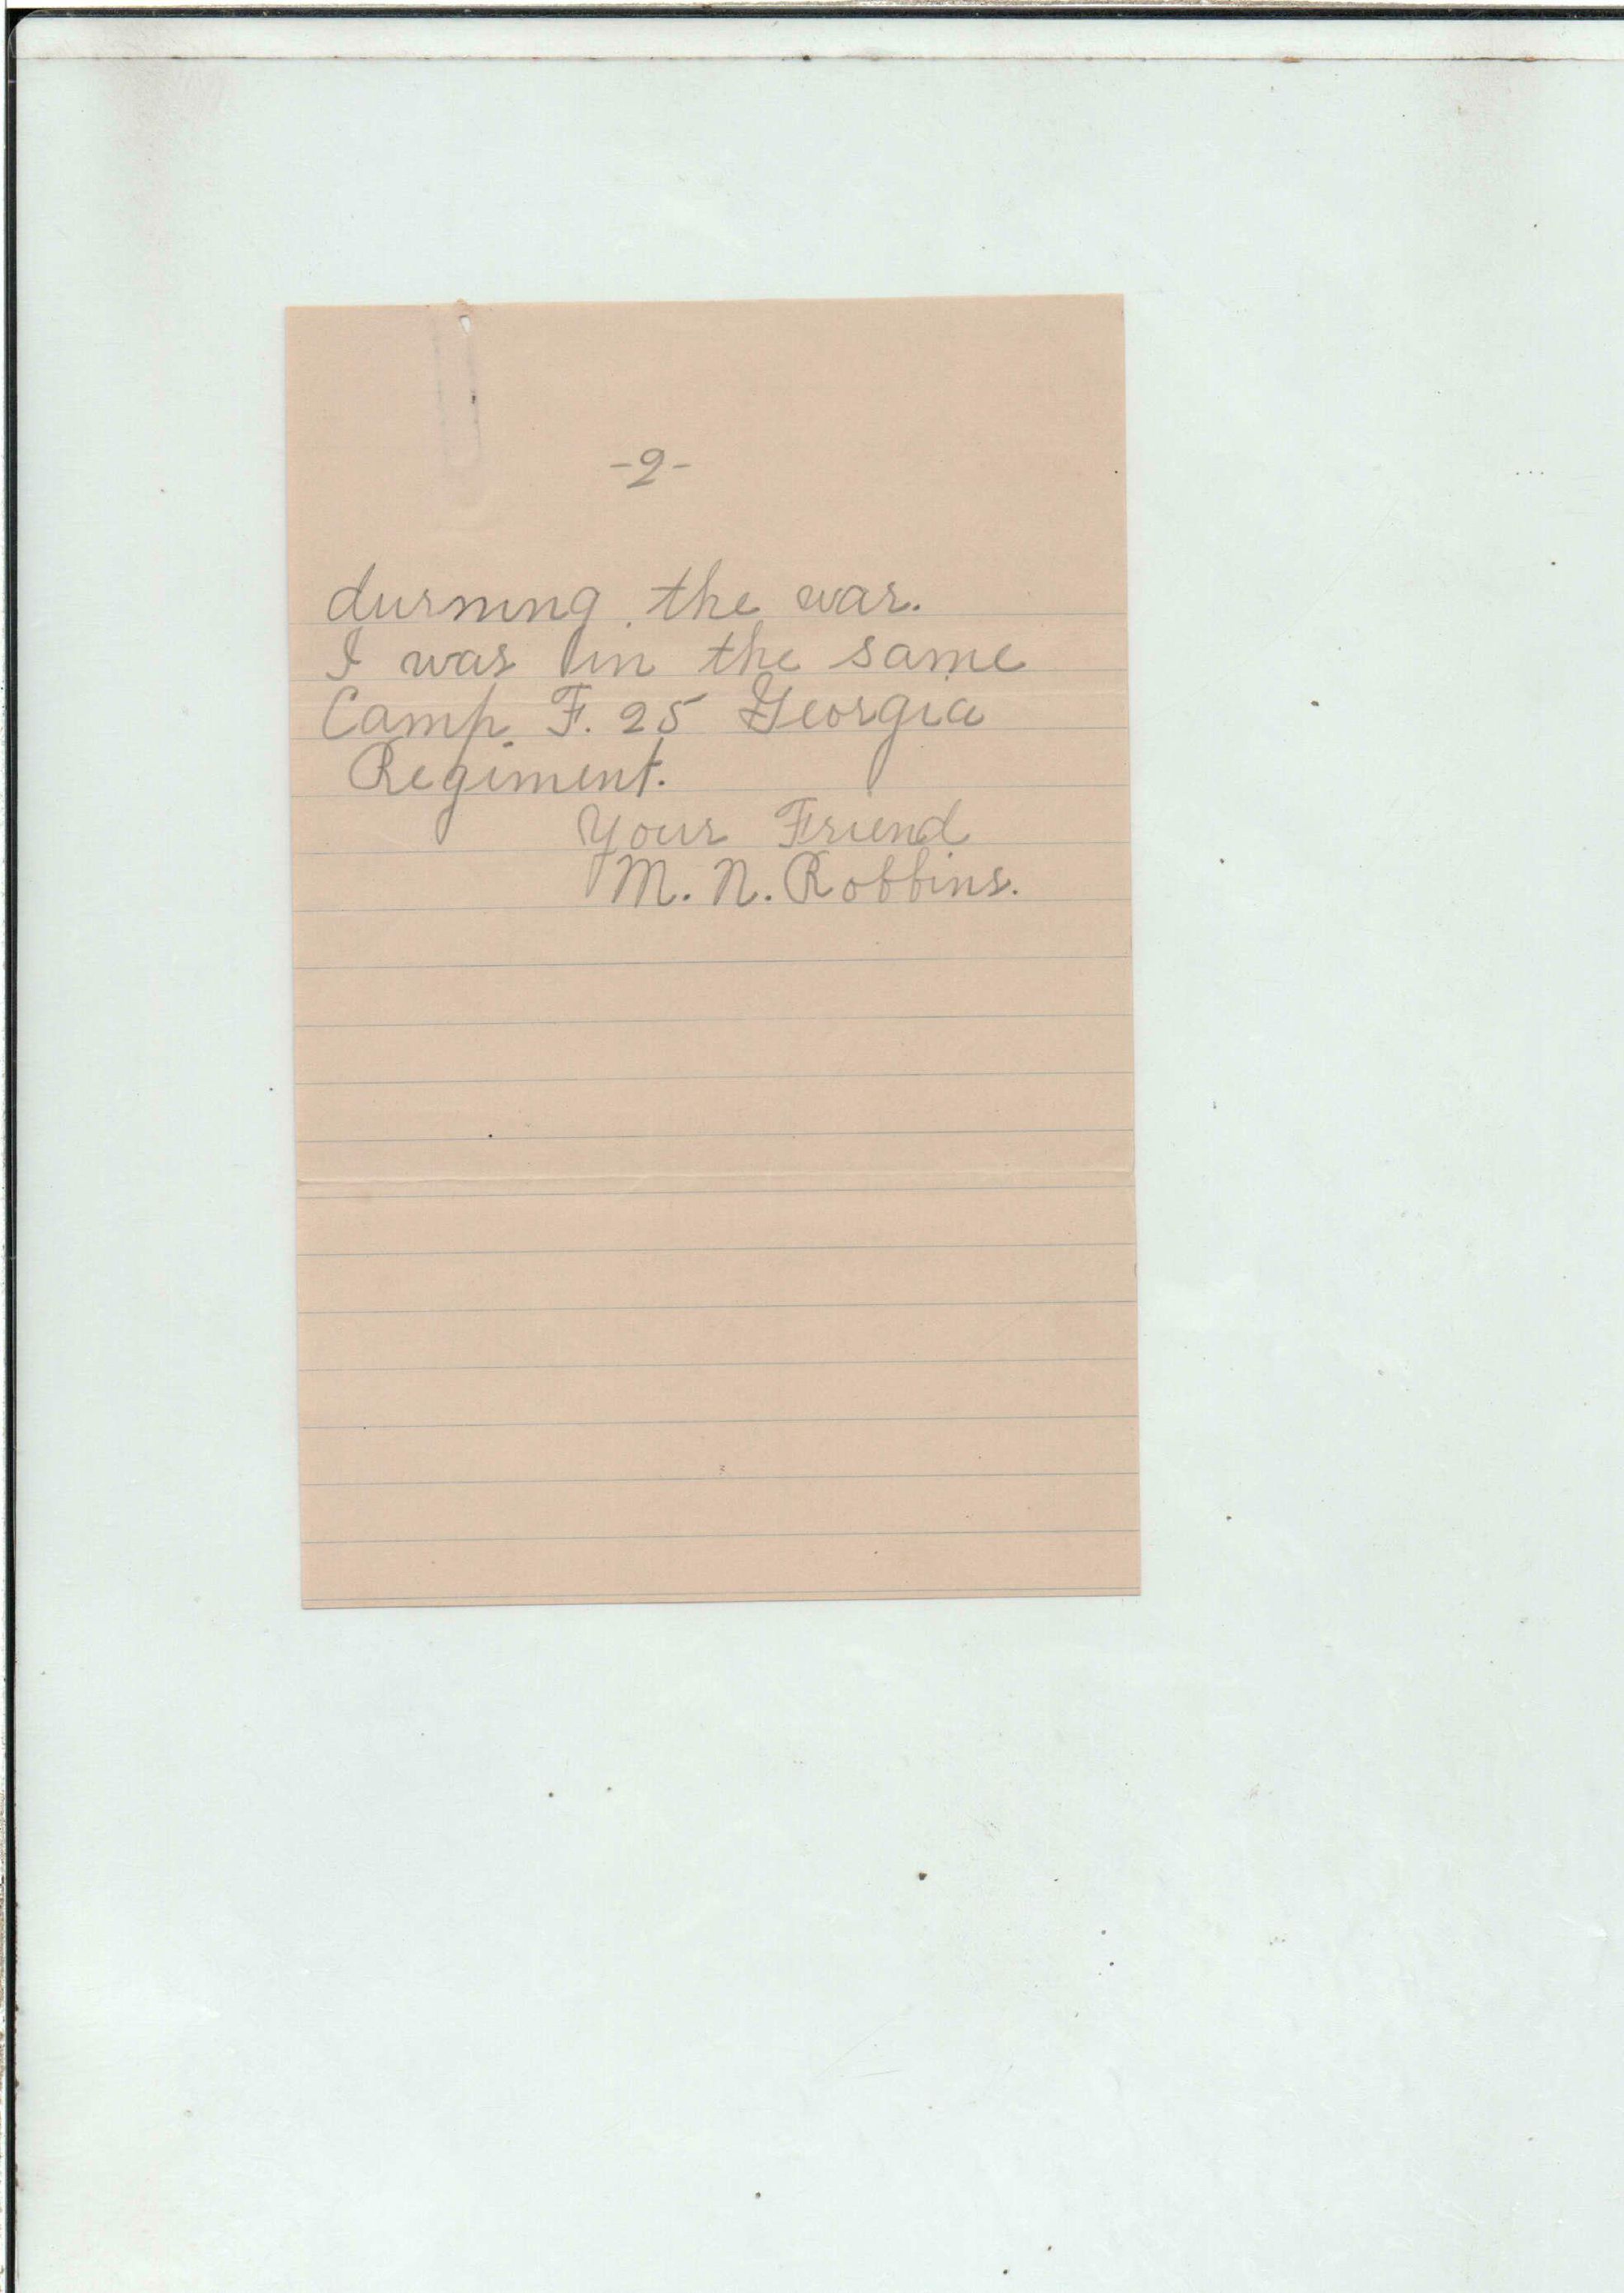 -2-
durning the war.
I was in the same
Camp. F. 25 Georgia
Regiment.
Your Friend
M. N. Robbins.